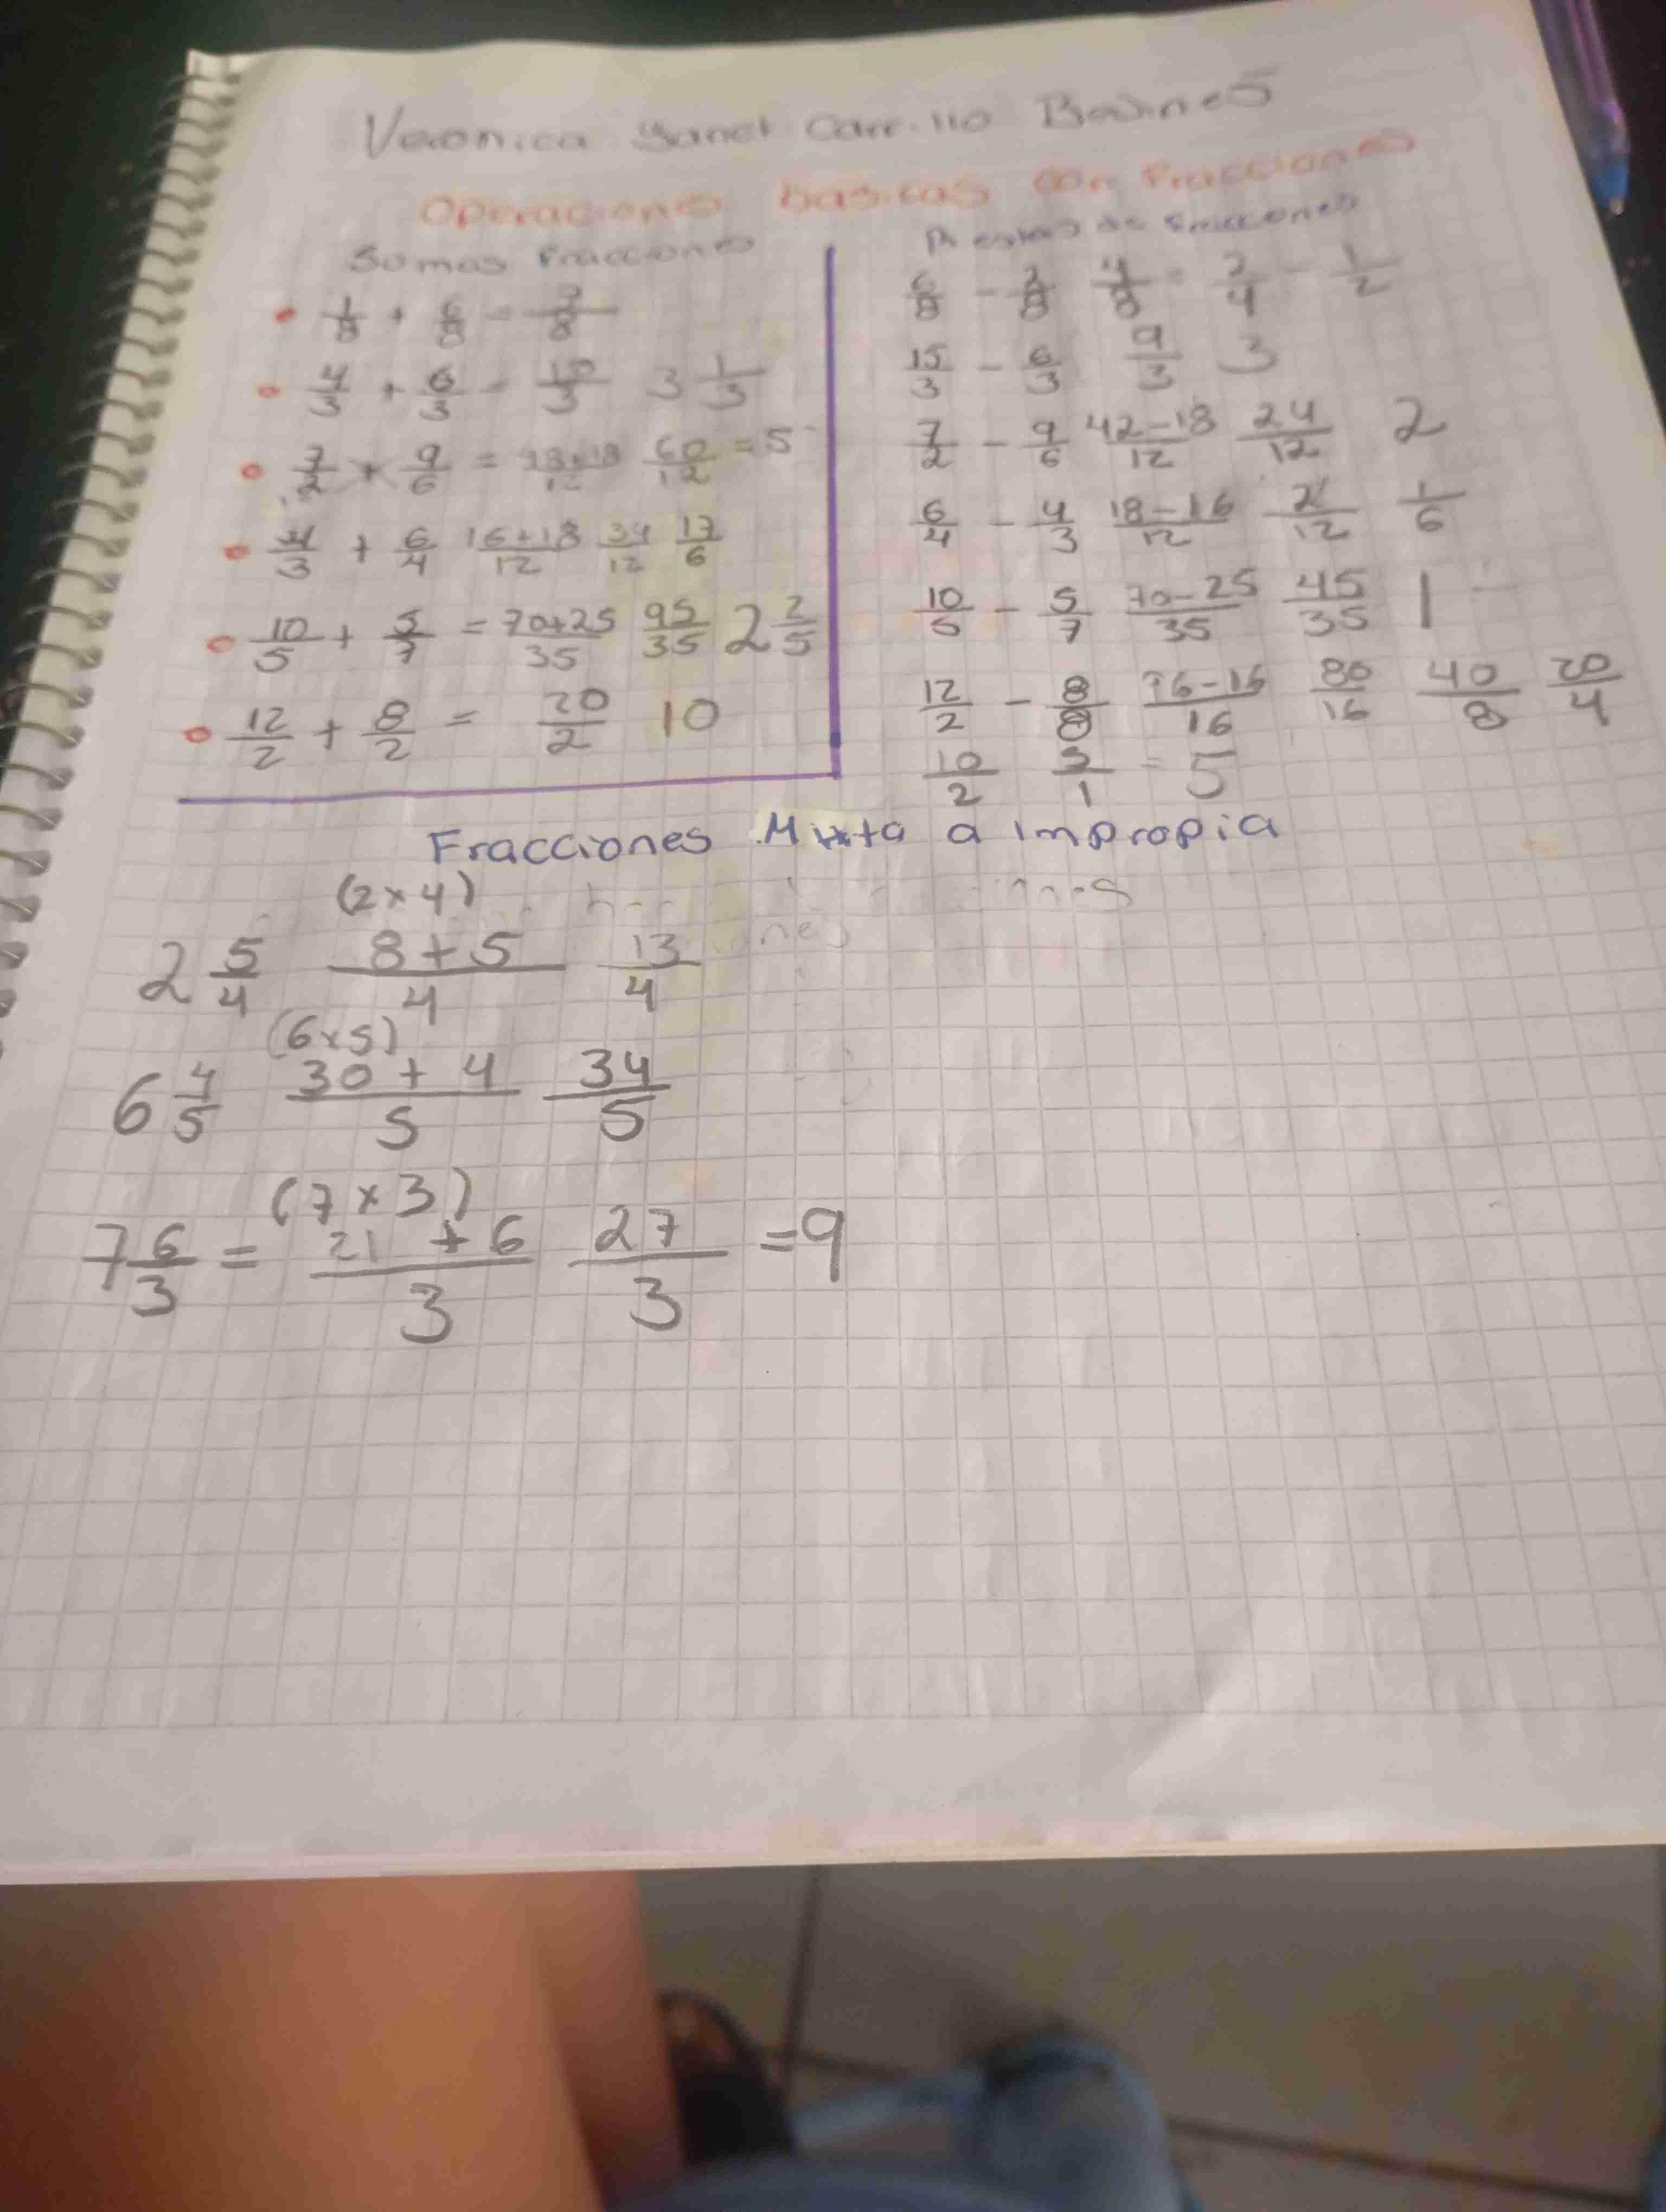 Veronica Yanet Carrillo
Operaciones basicas con fracciones
Sumas fracciones
1/8 + 6/8 = 7/8
4/3 + 6/3 = 10/3 3 1/3
7/2 + 9/6 = 60/12 = 5
4/3 + 6/4 16+18/12 34/12 17/6
10/5 + 5/7 = 70+25/35 95/35 2 2/5
12/2 + 8/2 = 20/2 10
Restas de fracciones
6/8 - 2/8 4/8 = 2/4 - 1/2
15/3 - 6/3 9/3 3
7/2 - 9/6 42-18/12 24/12 2
6/4 - 4/3 18-16/12 2/12 1/6
10/5 - 5/7 70-25/35 45/35 1
12/2 - 8/8 96-16/16 80/16 40/8 20/4
10/2 5/1 = 5
Fracciones Mixta a impropia
(2x4)
2 5/4 8+5/4 13/4
(6x5)
6 4/5 30+4/5 34/5
(7x3)
7 6/3 = 21+6/3 27/3 = 9